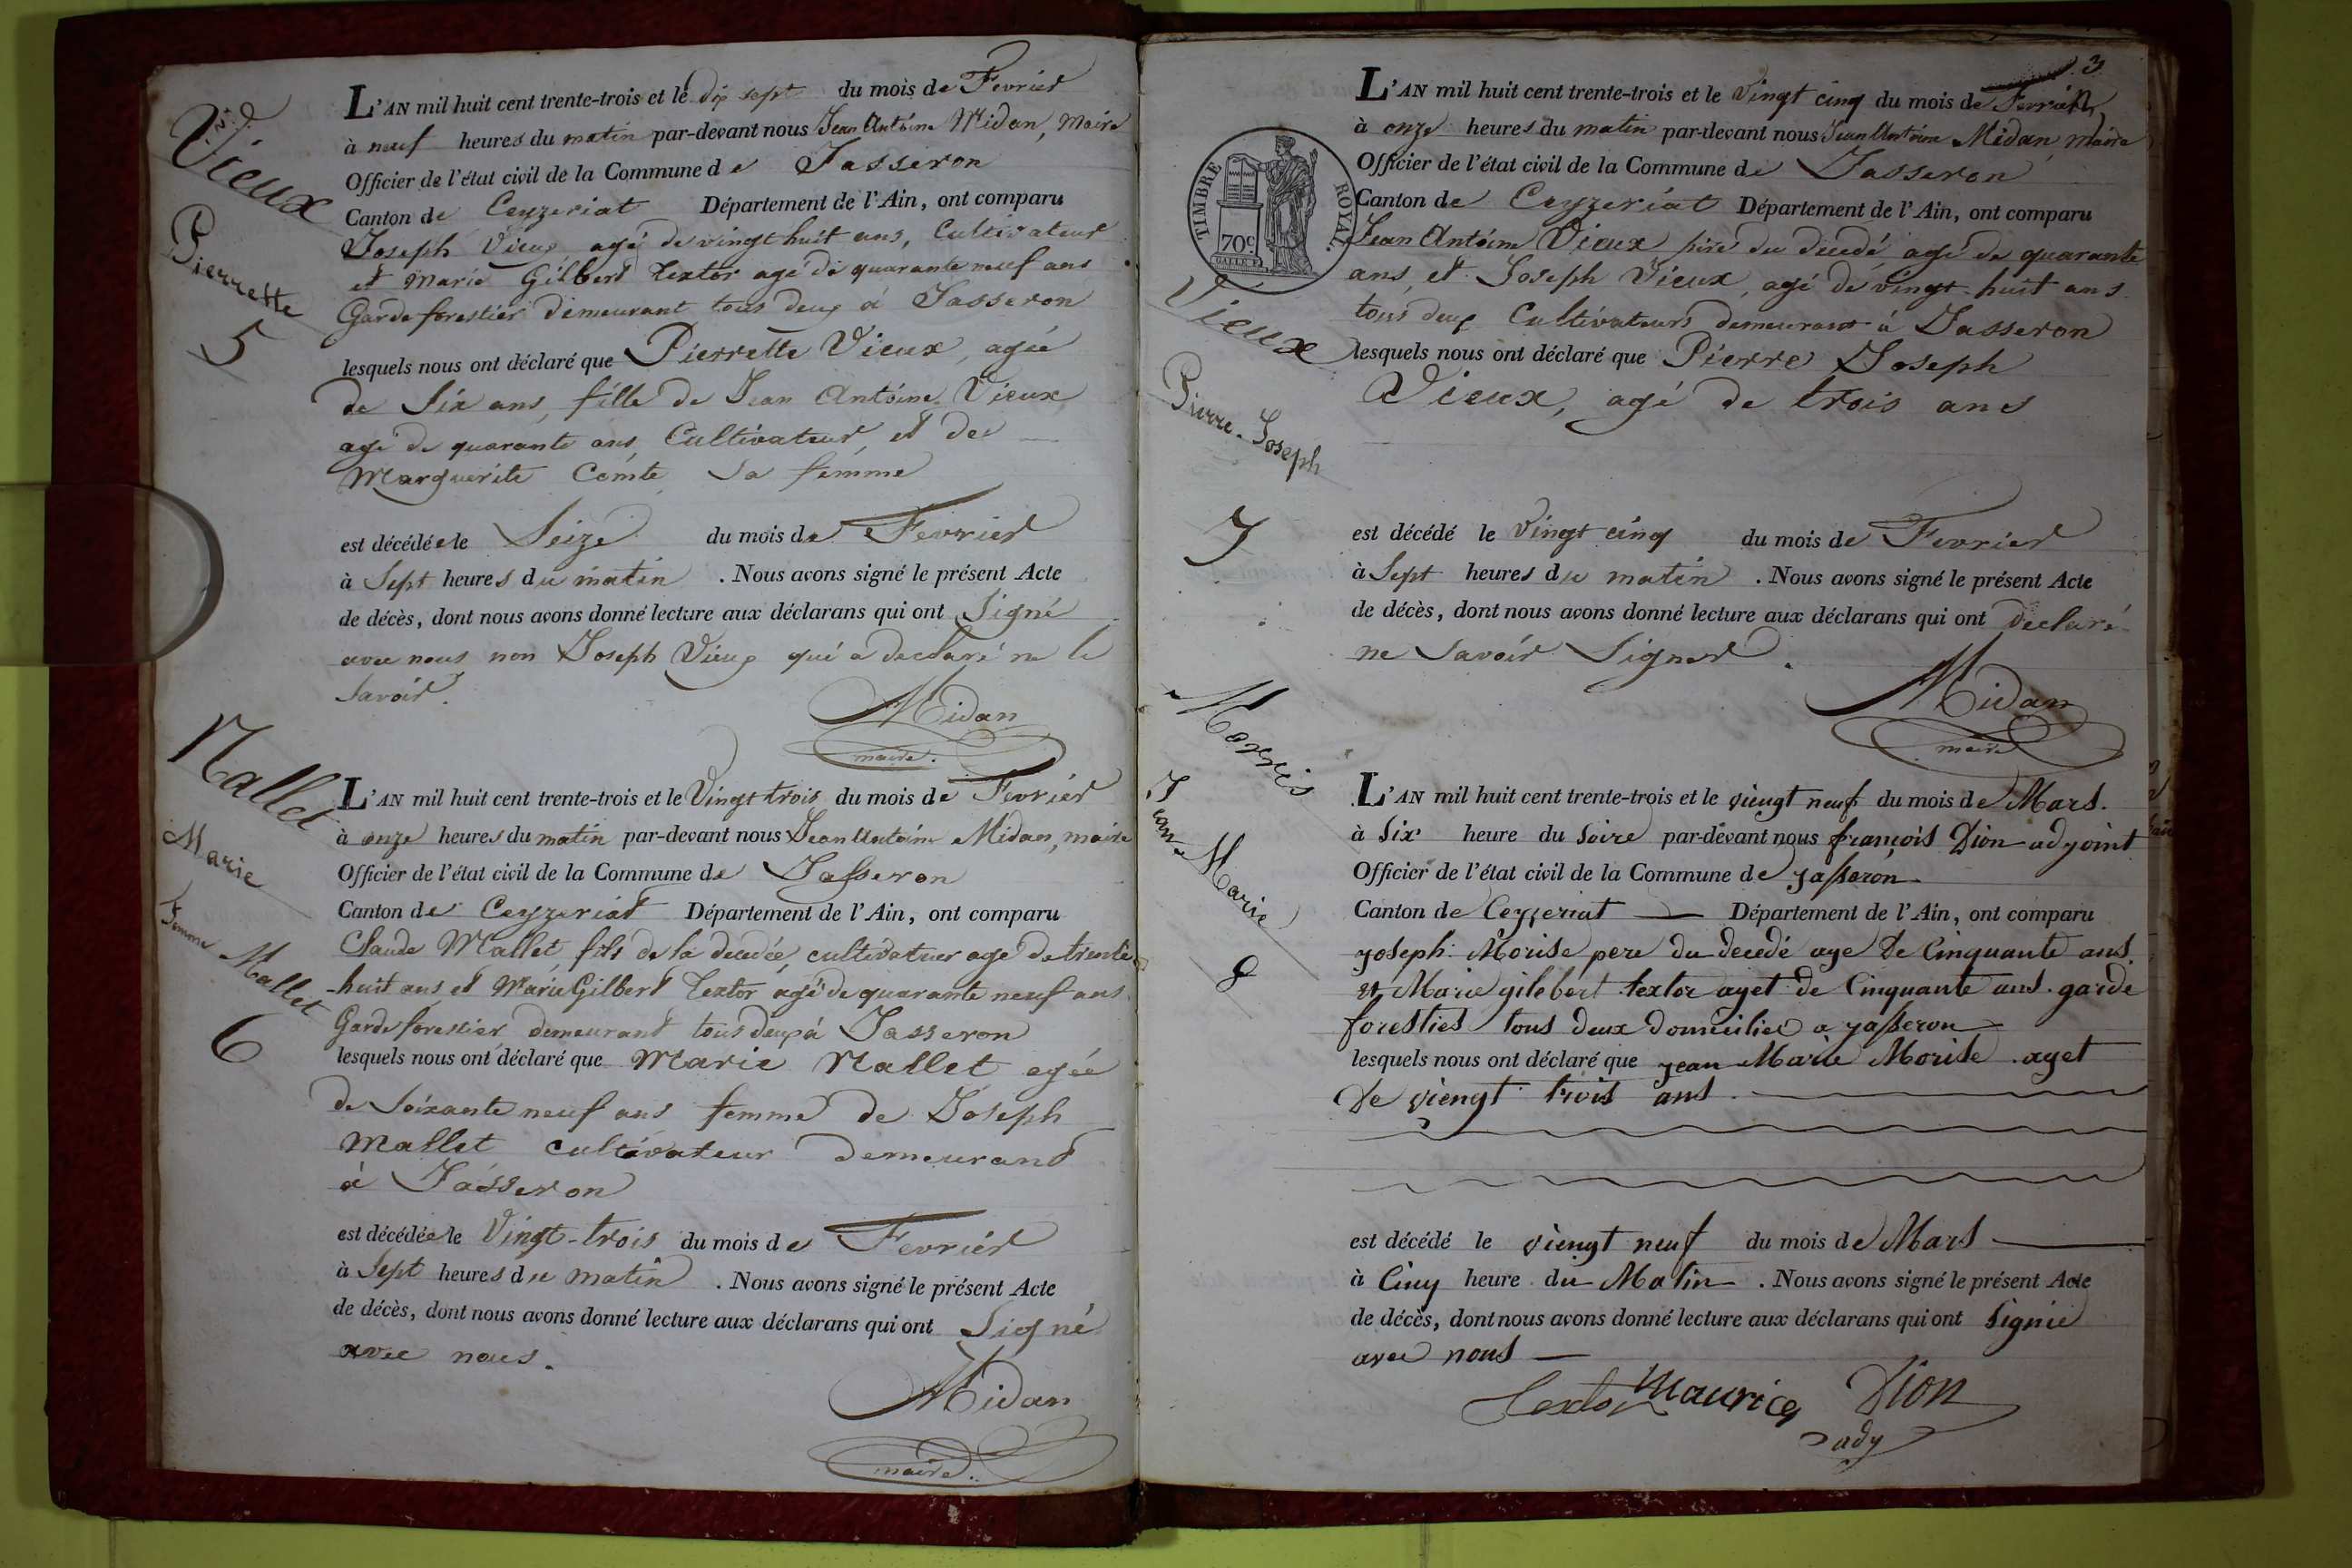 Vieux
Pierrette
5
L'AN mil huit cent trente-trois et le dix sept du mois de Fevrier
à neuf heures du matin par-devant nous Jean Antoine Midan, Maire
Officier de l'état civil de la Commune de Jasseron
Canton de Ceyzeriat Département de l'Ain, ont comparu
Joseph Vieux agé de vingt huit ans, Cultivateur
et Marie Gilbert Textor agé de quarante neuf ans
Garde forestier demeurant tous deux à Jasseron
lesquels nous ont déclaré que Pierrette Vieux, agée
de Six ans, fille de Jean Antoine Vieux
agé de quarante ans, Cultivateur, et de
Marguerite Comte sa femme
est décédée le Seize du mois de Fevrier
à Sept heures du matin . Nous avons signé le présent Acte
de décès, dont nous avons donné lecture aux déclarans qui ont Signé
avec nous non Joseph Vieux qui a declaré ne le
Savoir.
Midan
maire.
Mallet
Marie
Femme Mallet
6
L'AN mil huit cent trente-trois et le Vingt trois du mois de Fevrier
à onze heures du matin par-devant nous Jean Antoine Midan, maire
Officier de l'état civil de la Commune de Jasseron
Canton de Ceyzeriat Département de l'Ain, ont comparu
Claude Mallet fils de la decedée, cultivateur age de trente
-huit ans et Marie Gilbert Textor agé de quarante neuf ans
Garde forestier demeurant tous deux à Jasseron
lesquels nous ont déclaré que Marie Mallet agée
de Soixante neuf ans femme de Joseph
Mallet cultivateur demeurant
à Jasseron
est décédée le Vingt-trois du mois de Fevrier
à Sept heures du matin . Nous avons signé le présent Acte
de décès, dont nous avons donné lecture aux déclarans qui ont Signé
avec nous.
Midan
maire.
3
TIMBRE ROYAL.
70c
Vieux
Pierre-Joseph
7
L'AN mil huit cent trente-trois et le Vingt cinq du mois de Fevrier
à onze heures du matin par-devant nous Jean Antoine Midan, Maire
Officier de l'état civil de la Commune de Jasseron
Canton de Ceyzeriat Département de l'Ain, ont comparu
Jean Antoine Vieux père du decedé agé de quarante
ans, et Joseph Vieux, agé de vingt-huit ans
tous deux Cultivateurs demeurant à Jasseron
lesquels nous ont déclaré que Pierre Joseph
Vieux, agé de trois ans
est décédé le Vingt cinq du mois de Fevrier
à Sept heures du matin . Nous avons signé le présent Acte
de décès, dont nous avons donné lecture aux déclarans qui ont declaré
ne Savoir Signer.
Midan
maire
Morris
Jean-Marie
8
L'AN mil huit cent trente-trois et le viengt neuf du mois de Mars.
à Six heure du Soire par-devant nous françois Dion adjoint
Officier de l'état civil de la Commune de yasseron
Canton de Ceyzeriat Département de l'Ain, ont comparu
yoseph Morise pere du decedé age De Cinquante ans.
et Marie gilebert textor aget de Cinquante ans. garde
foresties tous deux domicilies a yasseron
lesquels nous ont déclaré que yean Marie Morise aget
De viengt trois ans
est décédé le viengt neuf du mois de Mars
à Cinq heure du Matin . Nous avons signé le présent Acte
de décès, dont nous avons donné lecture aux déclarans qui ont Signie
avec nous
Textor Maurice Dion
adj